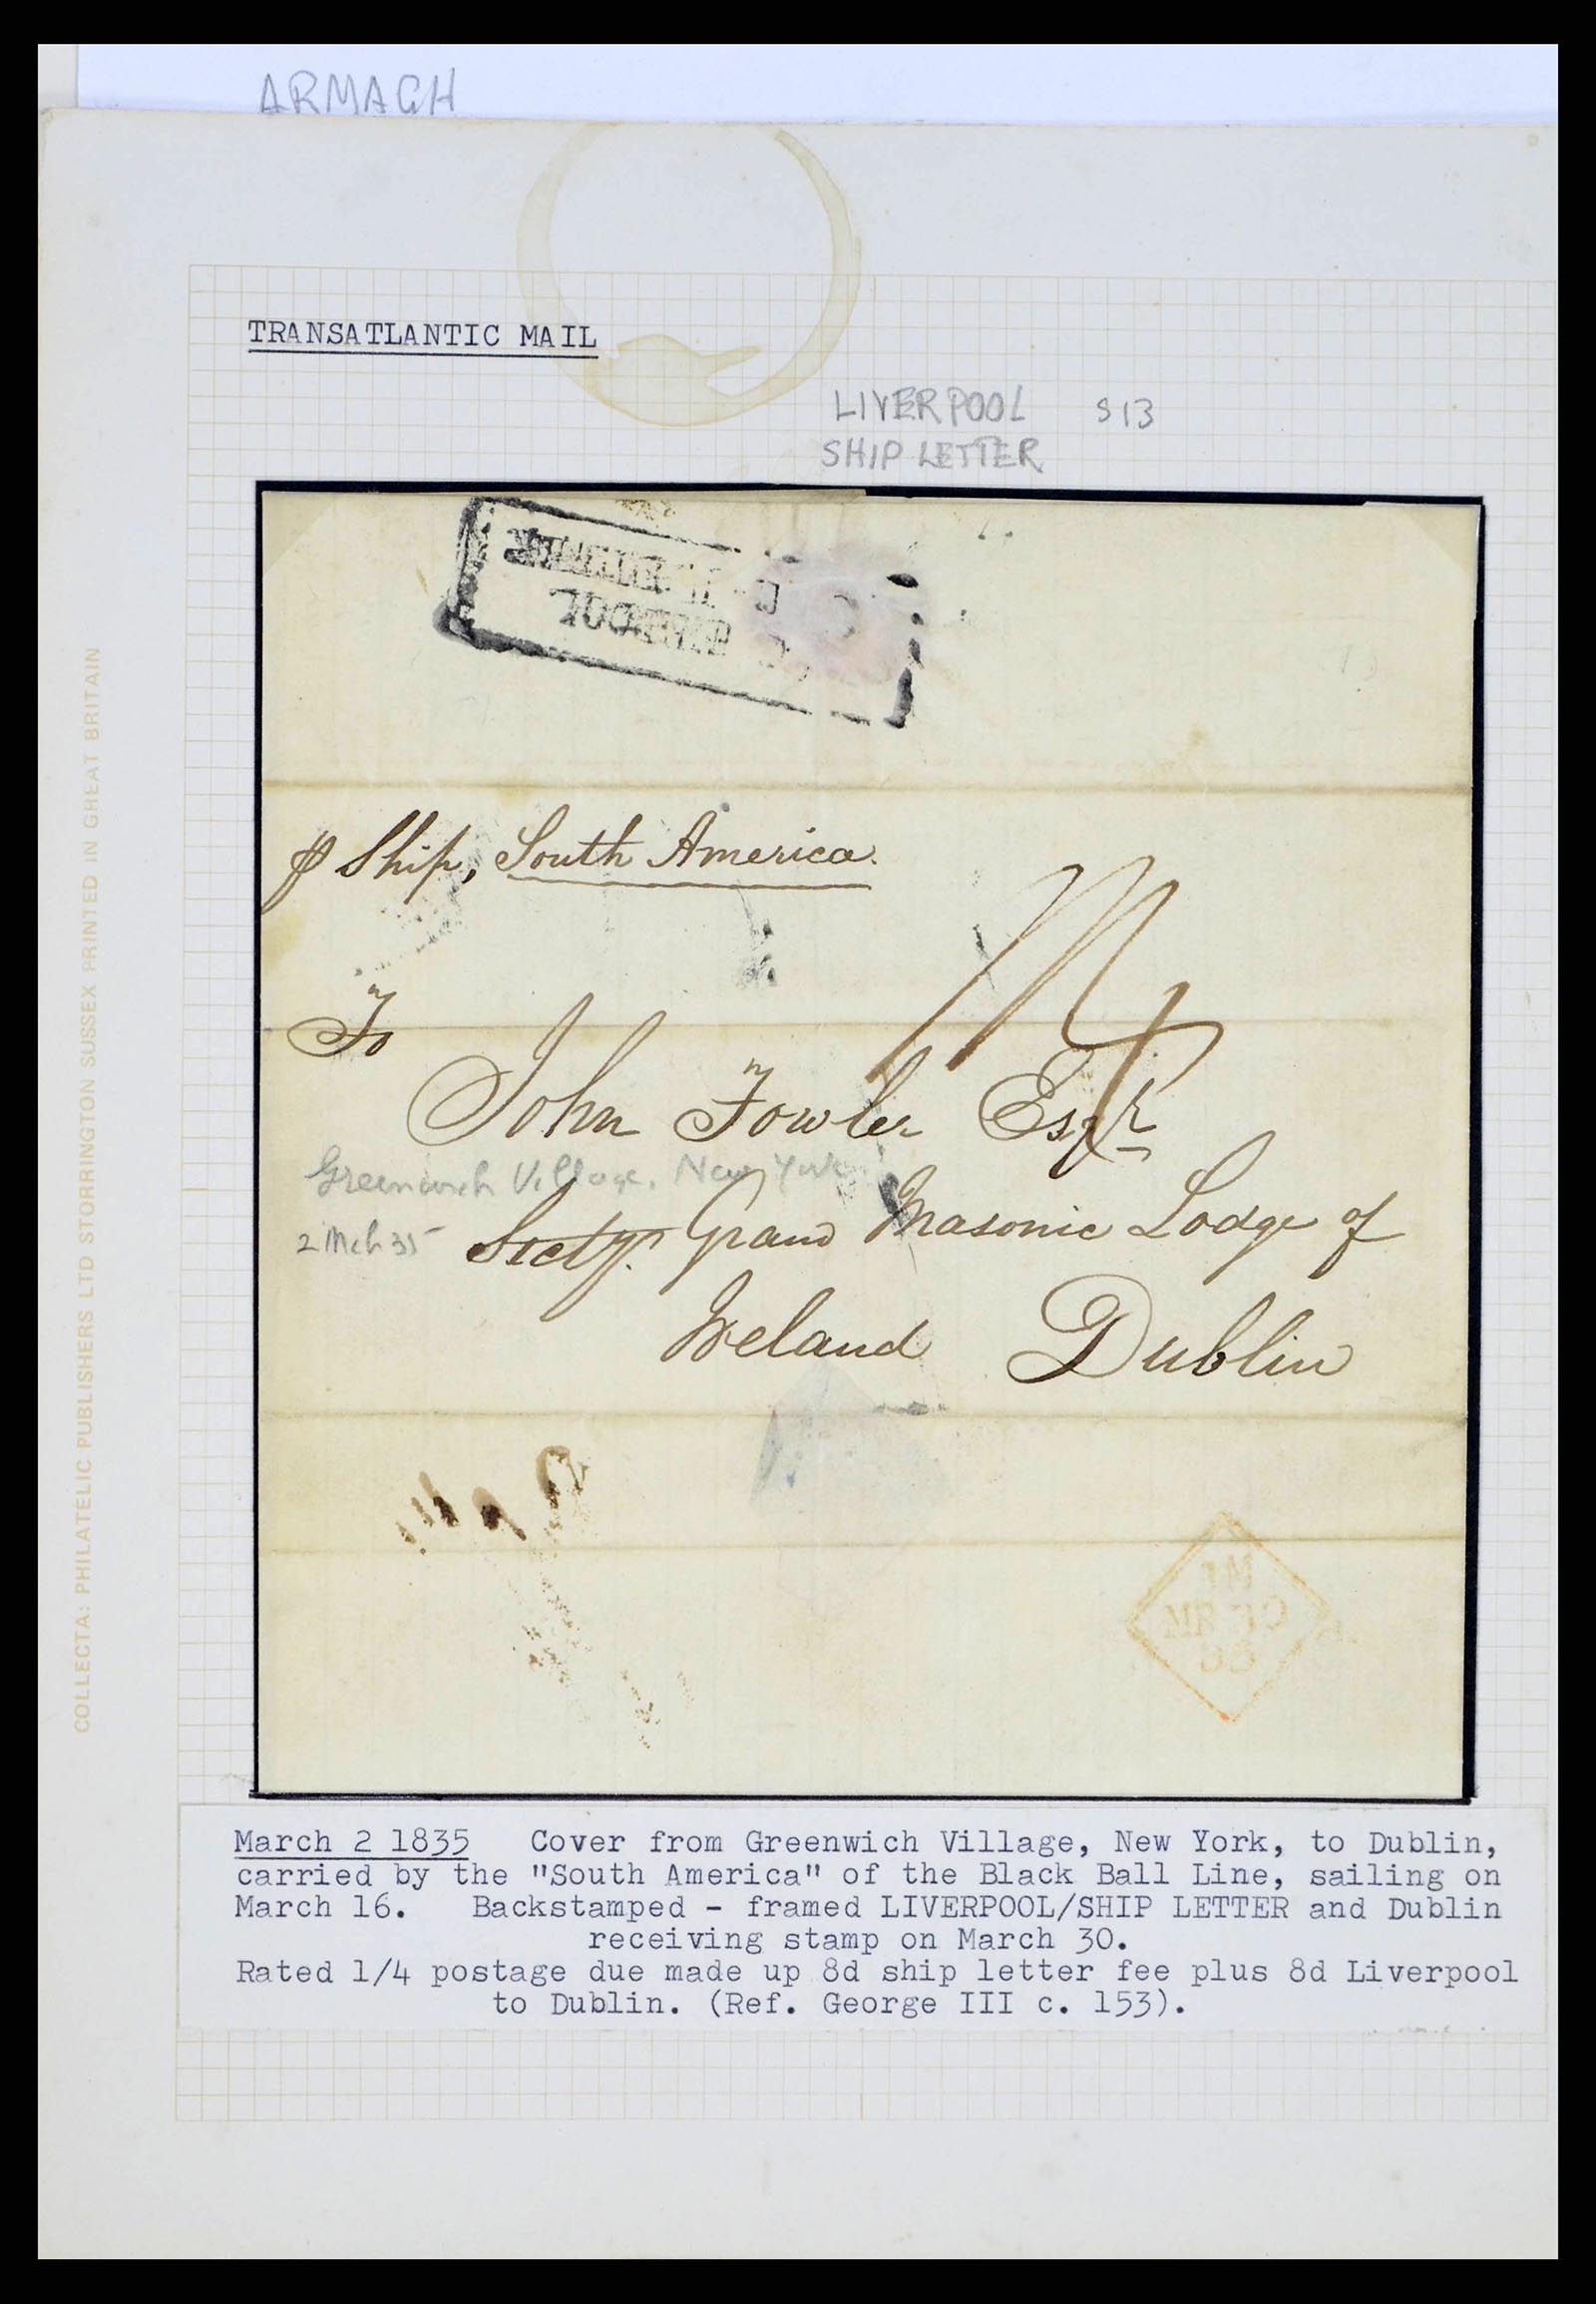 ARMAGH
TRANSATLANTIC MAIL
LIVERPOOL S13
SHIP LETTER
COLLECTA: PHILATELIC PUBLISHERS LTD STORRINGTON SUSSEX PRINTED IN GREAT BRITAIN
Ship, South America.
1/4
To
John Fowler Esqr
Greenwich Village, New York
2 Mch 35
Secty. Grand Masonic Lodge of
Ireland Dublin
March 2 1835 Cover from Greenwich Village, New York, to Dublin,
carried by the "South America" of the Black Ball Line, sailing on
March 16. Backstamped - framed LIVERPOOL/SHIP LETTER and Dublin
receiving stamp on March 30.
Rated 1/4 postage due made up 8d ship letter fee plus 8d Liverpool
to Dublin. (Ref. George III c. 153).